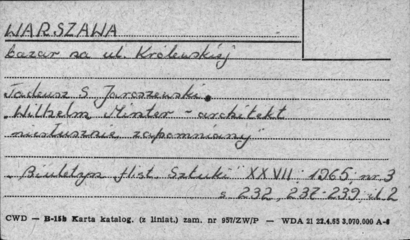 WARSZAWA
bazar na ul. Królewskiej
Tadeusz S Jaroszewski.
„Wilhelm Minter – architekt
niesłusznie zapomniany"
„Biuletyn Hist. Sztuki" XXVII : 1965, nr 3
s 232, 237-239 il. 2
CWD — B-15b Karta katalog. (z liniat.) zam. nr 957/ZW/P — WDA 21 22.4.65 3.070.000 A-6